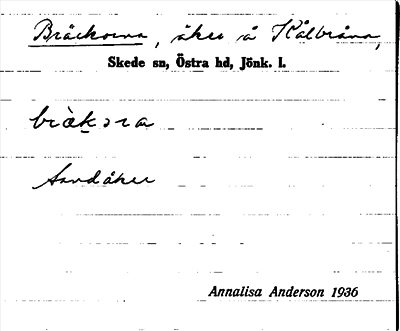 Bräckorna, åker å Kålbråna,
Skede sn, Östra hd, Jönk. l.
bràkɔra
Sandåker
Annalisa Anderson 1936